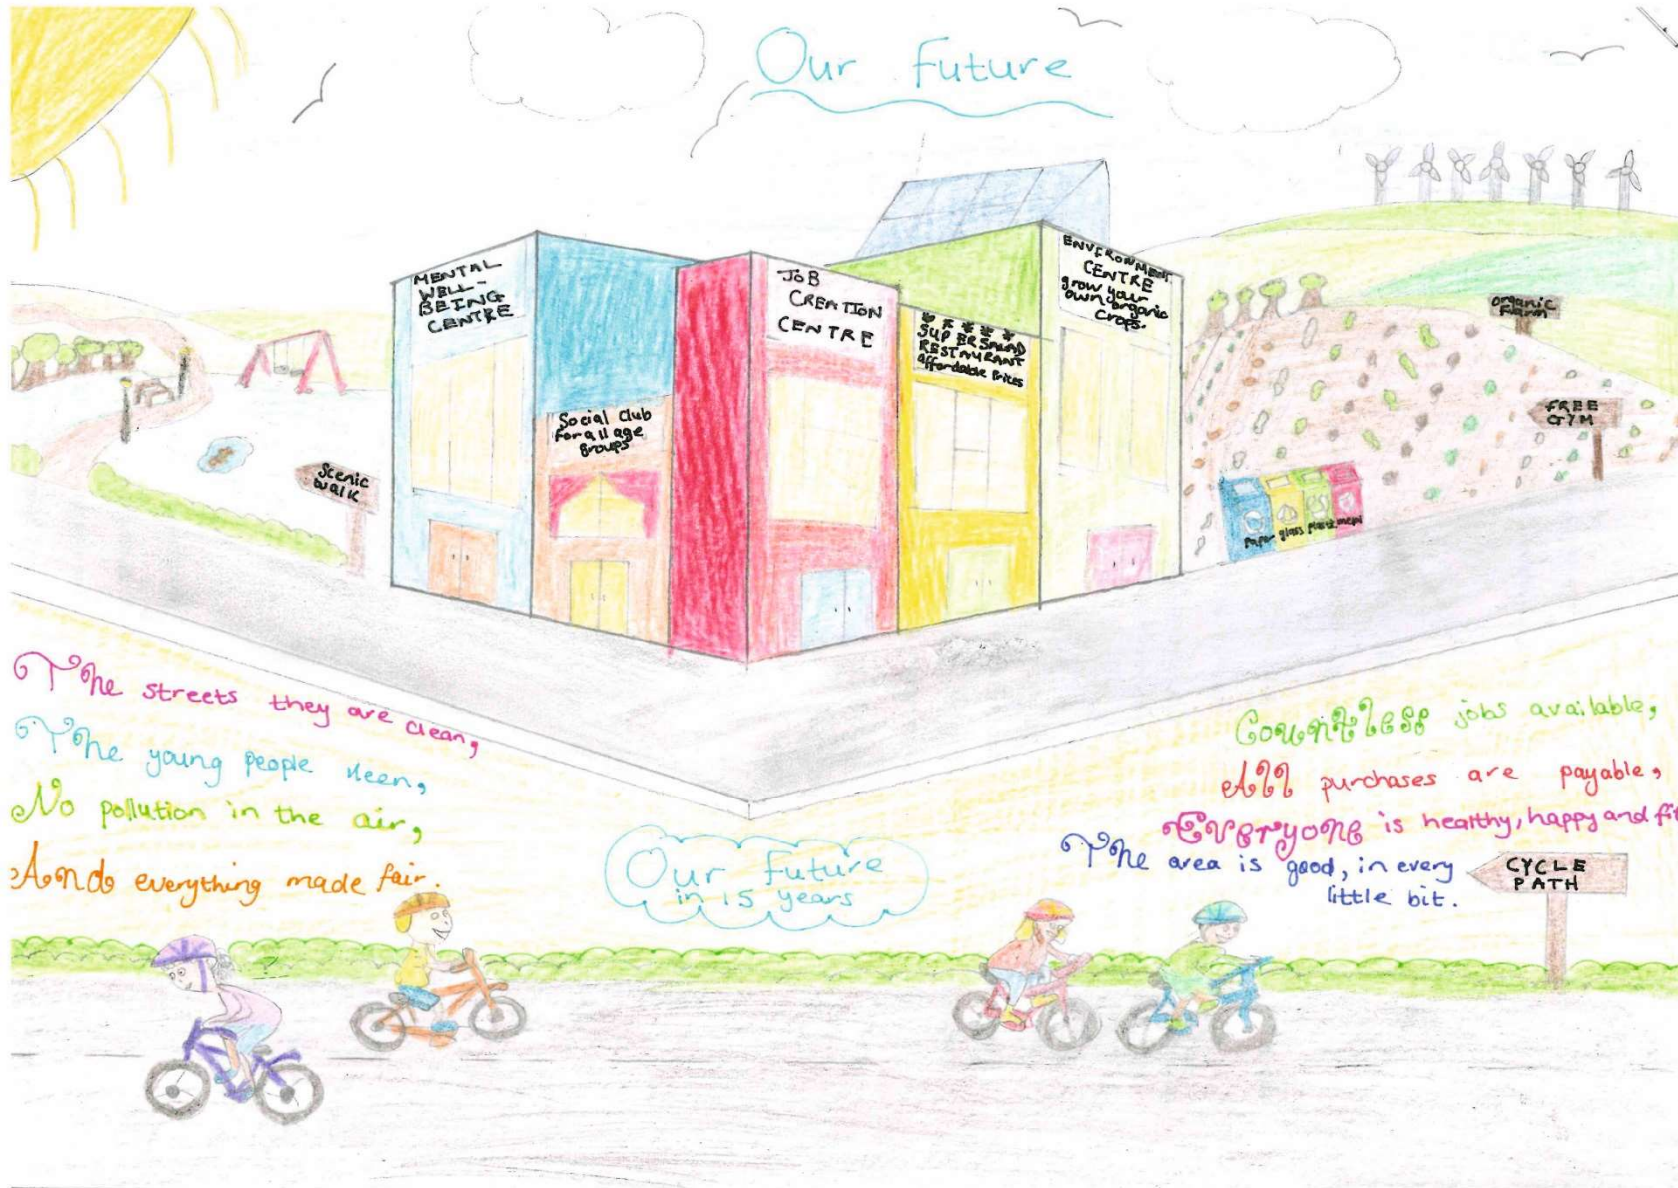 Our Future
MENTAL
WELL-
BEING
CENTRE
Social Club
for all age
groups
JOB
CREATION
CENTRE
* * * * *
SUPERSALAD
RESTAURANT
affordable Prices
ENVIRONMENT
CENTRE
grow your
own organic
crops.
organic
Farm
FREE
GYM
Scenic
walk
paper glass plastic metal
The streets they are clean,
The young people keen,
No pollution in the air,
And everything made fair.
Countless jobs available,
All purchases are payable,
Everyone is healthy, happy and fit
The area is good, in every
little bit.
Our Future
in 15 years
CYCLE
PATH